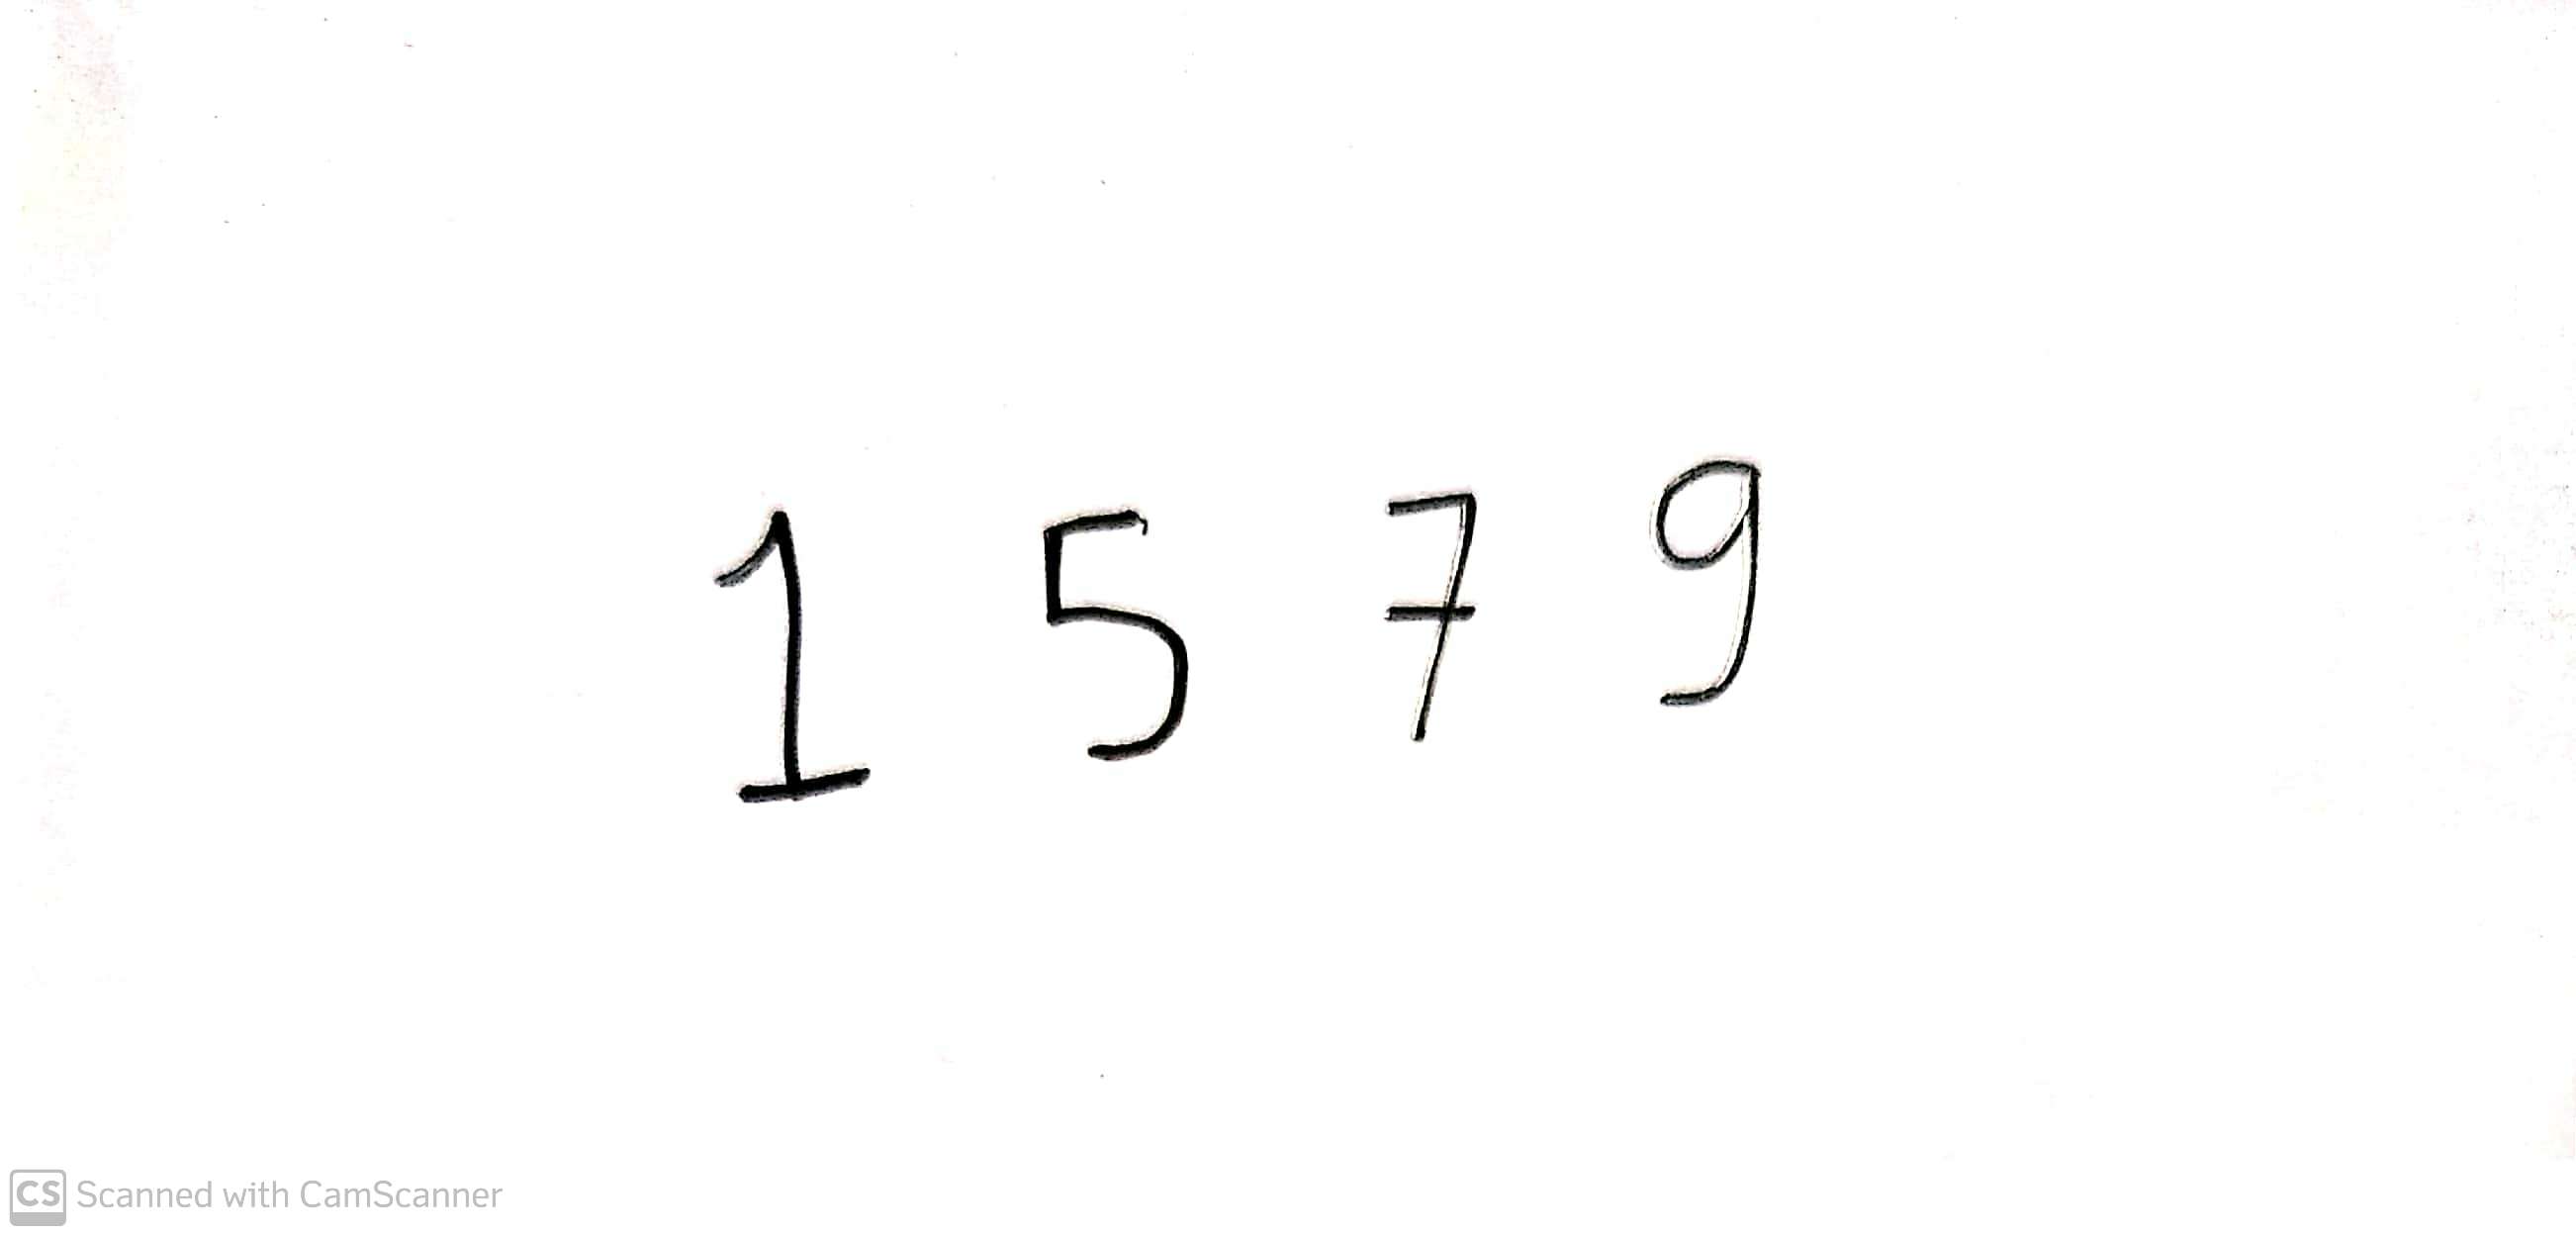 1 5 7 9
CS Scanned with CamScanner